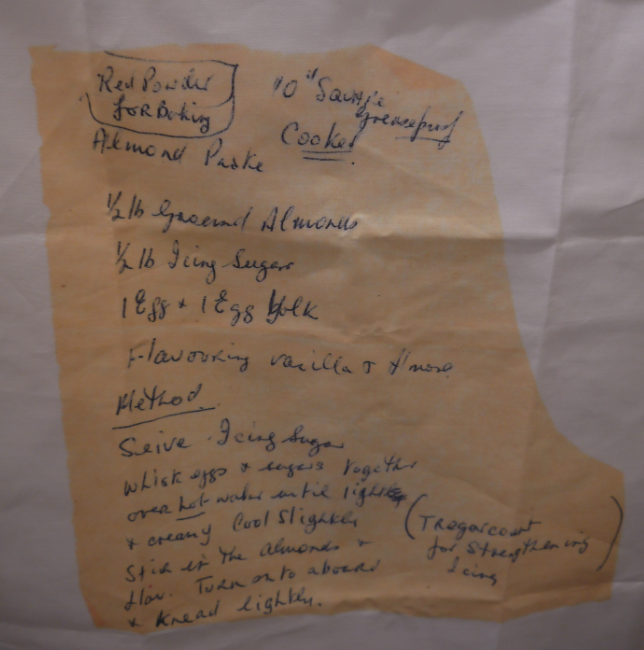 Red Powder
for Baking
10" Square
greaseproof
Cooked
Almond Paste
1/2 lb Ground Almonds
1/2 lb Icing Sugar
1 Egg + 1 Egg Yolk
Flavouring vanilla +
Method
Seive Icing Sugar
Whisk eggs + sugars together
over hot water until light
+ creamy Cool Slightly
Stir in the almonds +
flav. Turn onto a board
+ knead lightly.
(
for Strengthening
Icing)